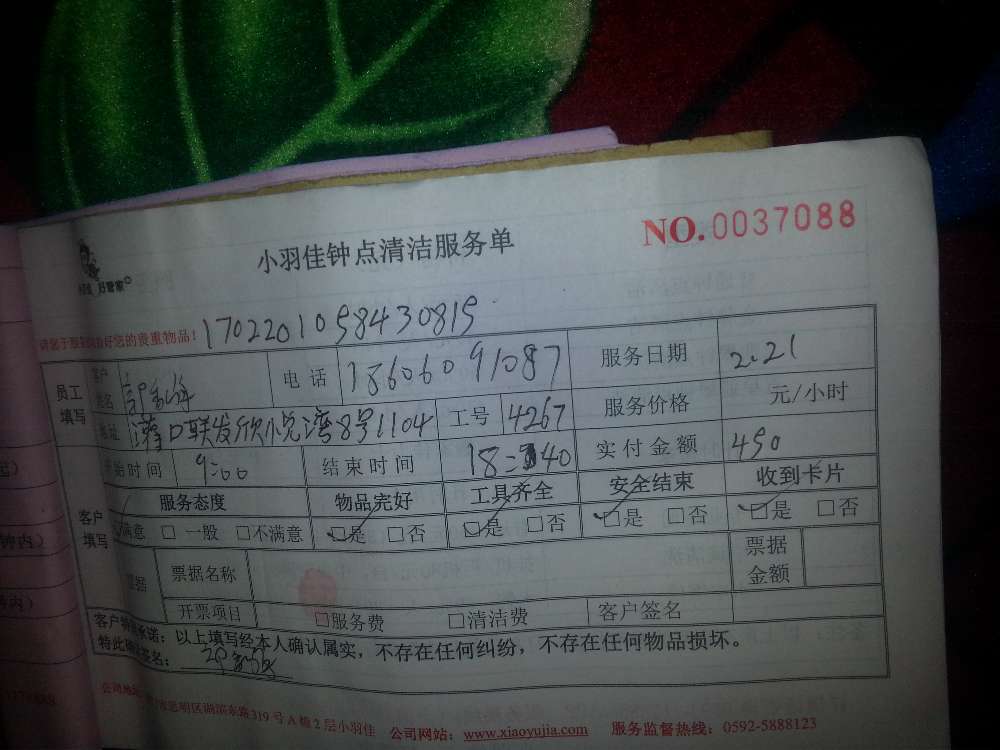 小羽佳钟点清洁服务单 NO.0037088
好管家
好您的贵重物品！ 17022010584308​15
员工填写 客户姓名 电话 18606091087 服务日期 2.21
地址 灌口联发欣悦湾8号1104 工号 4267 服务价格 元/小时
开始时间 9:00 结束时间 18:40 实付金额 490
客户填写 服务态度 物品完好 工具齐全 安全结束 收到卡片
满意 □ 一般 □不满意 □是 □否 □是 □否 □是 □否 □是 □否
票据 票据名称 票据金额
开票项目 □服务费 □清洁费 客户签名
客户特别承诺：以上填写经本人确认属实，不存在任何纠纷，不存在任何物品损坏。
特此确认签名：
公司地址 思明区湖滨东路319号A幢2层小羽佳 公司网站：www.xiaoyujia.com 服务监督热线：0592-5888123